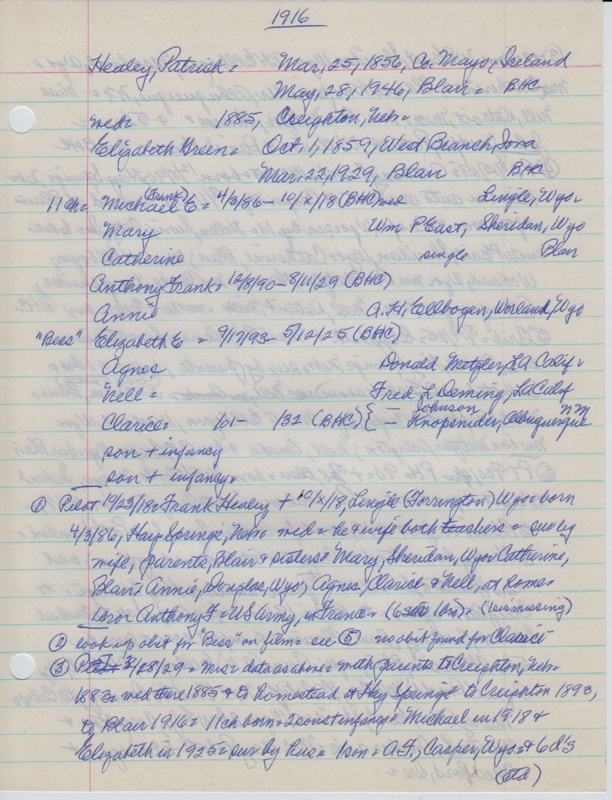 1916
Healey, Patrick = Mar, 25, 1856, Co. Mayo, Ireland
May, 28, 1946, Blair = BHC
med= 1885, Creighton, Neb=
Elizabeth Green = Oct, 1, 1859, West Branch, Iowa
Mar, 22, 1929, Blair BHC
11 ch= Michael E = 4/3/86 - 10/x/18 (BHC) med Lingle, Wyo=
(Frank)
Mary Wm P East, Sheridan, Wyo
Catherine single Blair
Anthony Frank = 12/8/90 - 8/11/29 (BHC)
Annie A. H. Ellbogen, Worland, Wyo
"Bess" Elizabeth E = 9/17/93 - 5/12/25 (BHC)
Agnes Donald Metzler, LA Calif=
Nell = Fred L Deming, LA Calif
Clarice = /01 - /32 (BHC) { — Johnson
— Knopsnider, Albuquerque NM
son + infancy
son + infancy=
① Pilot 10/23/18 = Frank Healey + 10/x/18, Lingle (Torrington) Wyo = born
4/3/86, Hay Springs, Neb= med = he & wife both teachers = sur by
wife, parents, Blair & sisters = Mary, Sheridan, Wyo = Catherine,
Blair = Annie, Douglas, Wyo, Agnes, Clarice & Nell, at home =
1 bror Anthony F = US Army, in France = (6 sis 1 bro) = (1 sis missing)
② look up obit for "Bess" on film = see ⑤ no obit found for Clarice
③ 3/28/29 = Mrs = data as above = with parents to Creighton, Neb=
1883 = med there 1885 & to homestead at Hay Springs = to Creighton 1893,
to Blair 1916 = 11 ch born = 2 sons + infancy = Michael in 1918 &
Elizabeth in 1925 = sur by hus = 1 son = A F, Casper, Wyo = & 6 d's
(ctd)